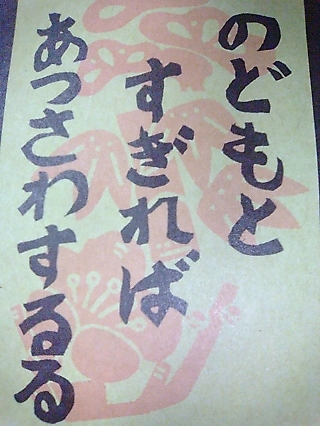 のどもと
すぎれば
あつさわするる